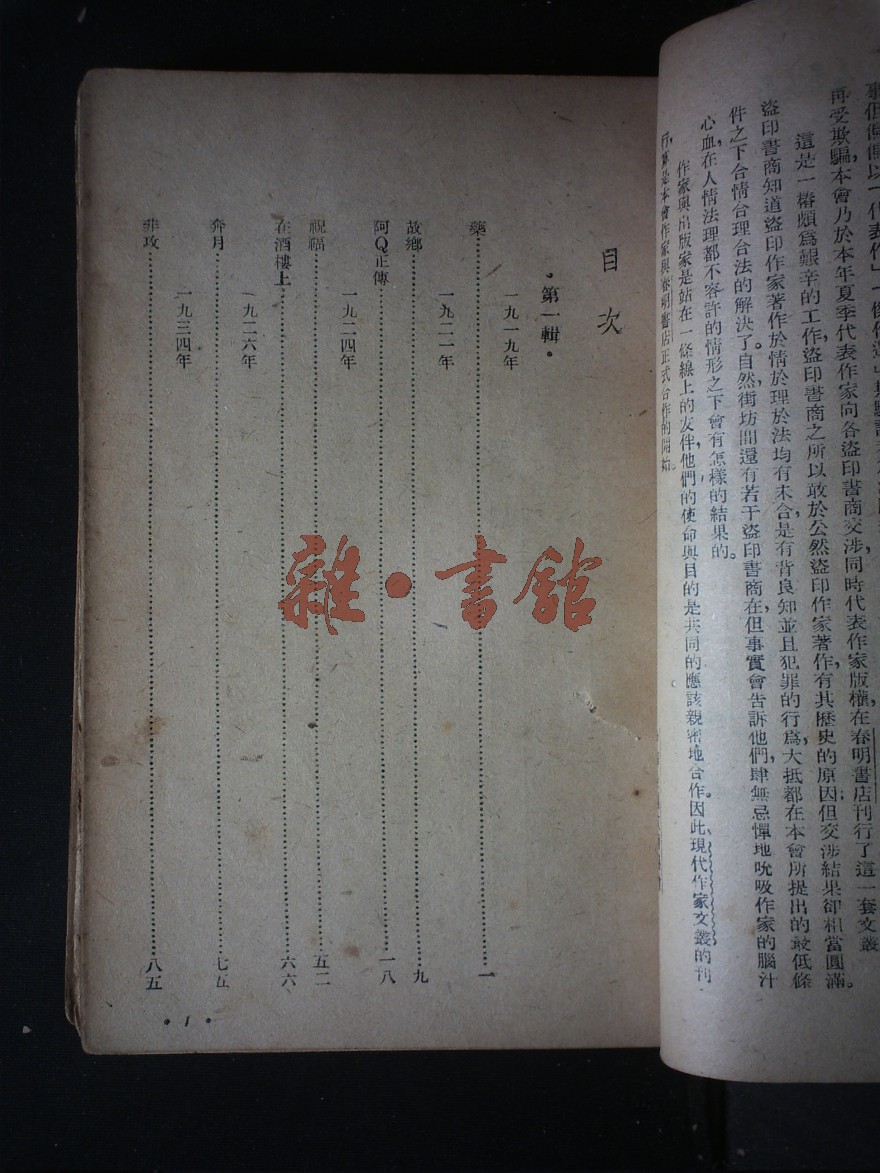 再受欺騙，本會乃於本年夏季代表作家向各盜印書商交涉，同時代表作家版權，在春明書店刊行了這一套文叢
這是一樁頗爲艱辛的工作，盜印書商之所以敢於公然盜印作家著作，有其歷史的原因；但交涉結果卻相當圓滿。
盜印書商知道盜印作家著作，於情於理於法均有未合，是有背良知並且犯罪的行爲，大抵都在本會所提出的最低條
件之下合情合理合法的解決了。自然，街坊間還有若干盜印書商在，但事實會告訴他們，肆無忌憚地吮吸作家的腦汁
心血，在人情法理都不容許的情形之下會有怎樣的結果的。
作家與出版家是站在一條線上的友伴，他們的使命與目的是共同的，應該親密地合作。因此，現代作家文叢的刊
行，算是本會作家與春明書店正式合作的開始。
目次
•第一輯•
一九一九年
藥……一
一九二一年
故鄉……九
阿Q正傳……一八
一九二四年
祝福……五二
在酒樓上……六六
一九二六年
奔月……七五
一九三四年
非攻……八五
• 1 •
雜·書館